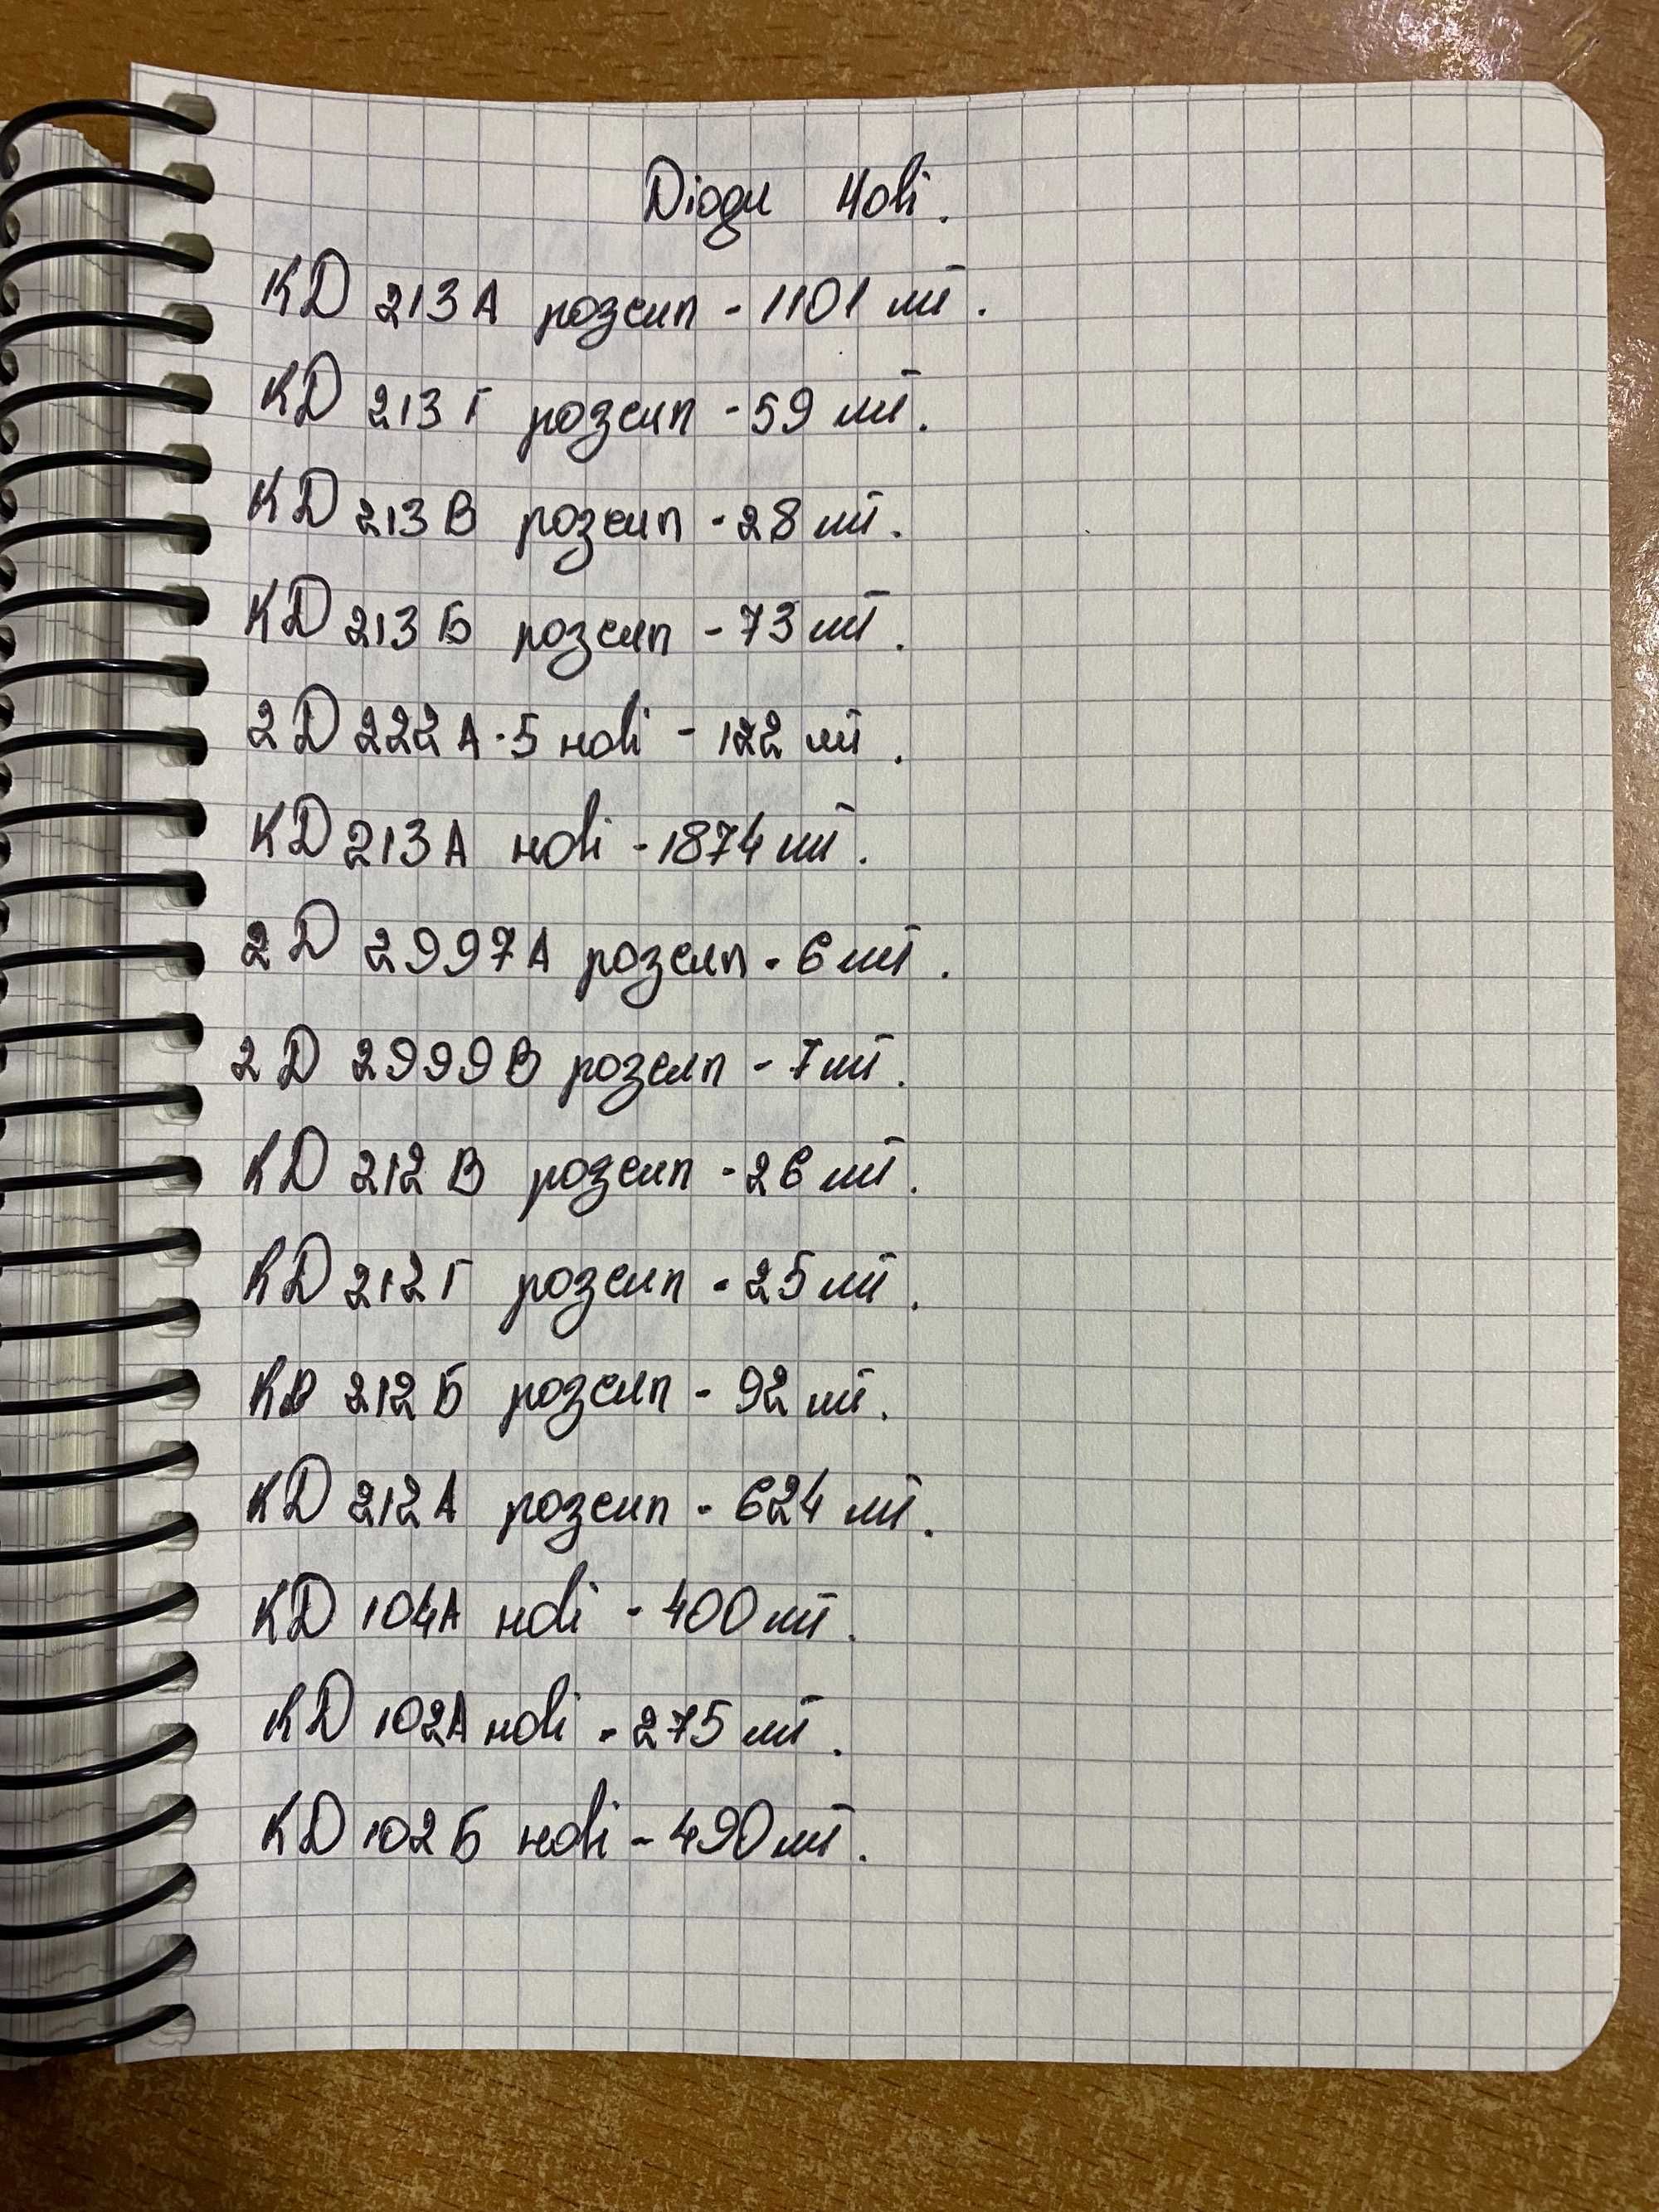 Діоди Нові.
КД 213А розсип - 1101 шт.
КД 213Г розсип - 59 шт.
КД 213В розсип - 28 шт.
КД 213Б розсип - 73 шт.
2Д 222А-5 нові - 122 шт.
КД 213А нові - 1874 шт.
2Д 2997А розсип - 6 шт.
2Д 2999В розсип - 7 шт.
КД 212В розсип - 26 шт.
КД 212Г розсип - 25 шт.
КД 212Б розсип - 92 шт.
КД 212А розсип - 624 шт.
КД 104А нові - 400 шт.
КД 102А нові - 275 шт.
КД 102Б нові - 490 шт.